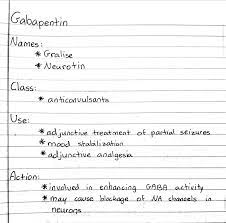 Gabapentin
Names:
* Gralise
* Neurotin
Class:
* anticonvulsants
Use:
* adjunctive treatment of partial seizures
* mood stabalization
* adjunctive analgesia
Action:
* involved in enhancing GABA activity
* may cause blockage of NA channels in
neurons